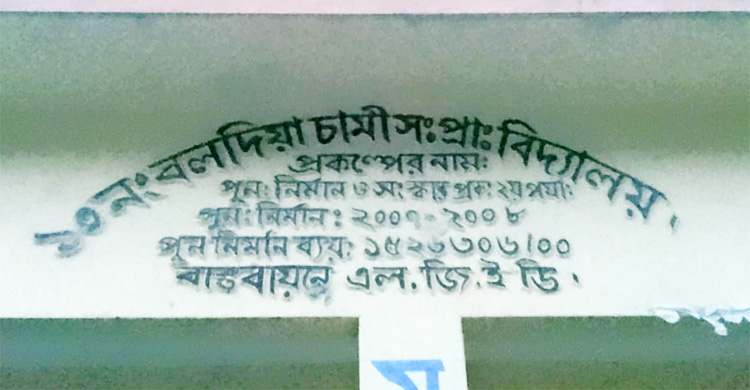 ১৩ নং বলদিয়া চামী সঃ প্রাঃ বিদ্যালয়।
প্রকল্পের নামঃ
পূনঃ নির্মান ও সংস্কার প্রকঃ ২য় পর্যাঃ
পূনঃ নির্মান : ২০০৭-২০০৮
পূন নির্মান ব্যয়: ১৫২৬৩০৬/০০
বাস্তবায়নে এল. জি. ই ডি।